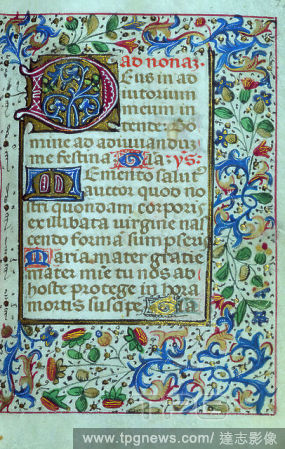 ad nonaz
Deus in ad
iutorium
meum in
tende: Do
mine ad adiuuandu
me festina Gla ys:
Memento salut
auctor quod no
stri quondam corpori
ex illibata uirgine nas
cendo forma sumpseri
Maria mater gratie
mater mie tu nos ab
hoste protege in hora
mortis suscipe Gla
www.tpgnews.com/ 達志影像